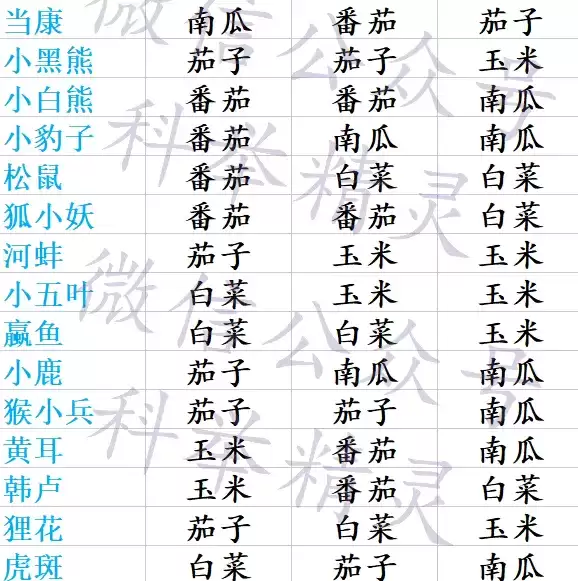 当康 南瓜 番茄 茄子
小黑熊 茄子 茄子 玉米
小白熊 番茄 番茄 南瓜
小豹子 番茄 南瓜 南瓜
松鼠 番茄 白菜 白菜
狐小妖 番茄 番茄 白菜
河蚌 茄子 玉米 玉米
小五叶 白菜 玉米 玉米
赢鱼 白菜 白菜 玉米
小鹿 茄子 南瓜 南瓜
猴小兵 茄子 茄子 南瓜
黄耳 玉米 番茄 南瓜
韩卢 玉米 番茄 白菜
狸花 茄子 白菜 玉米
虎斑 白菜 茄子 南瓜
微信公众号
科举精灵
微信公众号
科举精灵